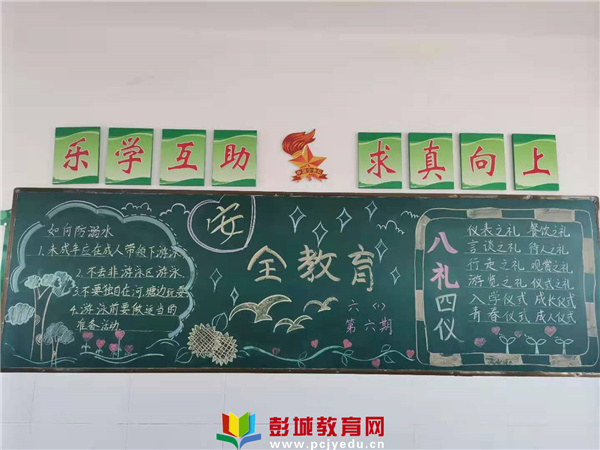 乐学互助
求真向上
如何防溺水
1.未成年应在成人带领下游泳
2.不去非游泳区游泳
3.不要独自在河塘边玩耍
4.游泳前要做适当的
准备活动
安
全教育
六(1)
第六期
八礼四仪
仪表之礼 餐饮之礼
言谈之礼 待人之礼
行走之礼 观赏之礼
游览之礼 仪式之礼
入学仪式 成长仪式
青春仪式 成人仪式
彭城教育网
www.pcjyedu.cn